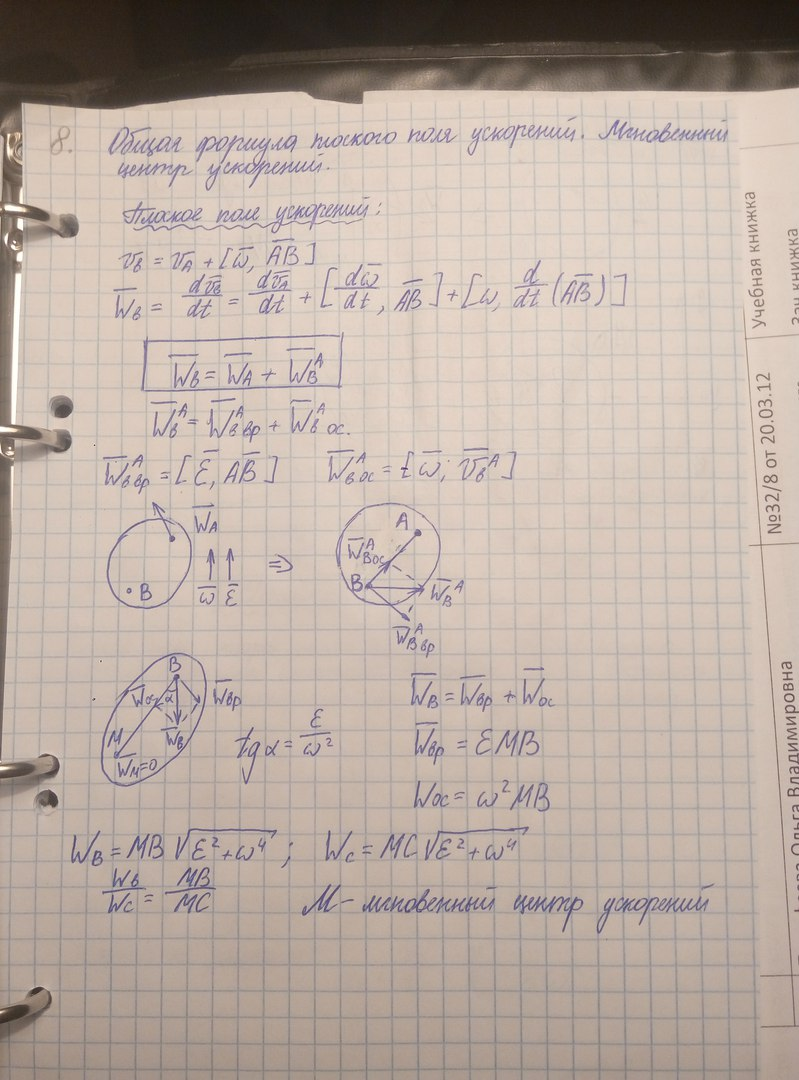 8. Общая формула плоского поля ускорений. Мгновенный
центр ускорений.
Плоское поле ускорений:
v̅_B = v̅_A + [ω̅, A̅B̅]
W̅_B = dv̅_B/dt = dv̅_A/dt + [dω̅/dt, A̅B̅] + [ω, d/dt (A̅B̅)]
W̅_B = W̅_A + W̅_B^A
W̅_B^A = W̅_B вр^A + W̅_B ос.^A
W̅_B вр^A = [ε̅, AB̅] W̅_B ос^A = [ω̅; v̅_B^A]
W̅_A
B
ω̅ ε̅
⇒
A
W̅_B ос^A
B
W̅_B^A
W̅_B вр^A
B
W̅_ос α W̅_вр
M W̅_B
W̅_M=0
tg α = ε/ω²
W̅_B = W̅_вр + W̅_ос
W̅_вр = εMB
W_ос = ω²MB
W_B = MB √(ε²+ω⁴) ; W_C = MC √(ε²+ω⁴)
W_B/W_C = MB/MC M – мгновенный центр ускорений
Учебная книжка
Зач книжка
№32/8 от 20.03.12
Ольга Владимировна